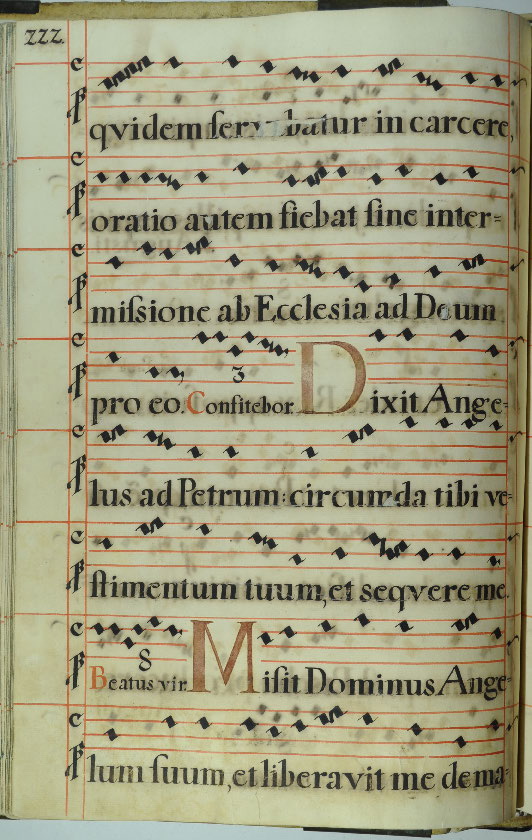 zzz.
qvidem servabatur in carcere,
oratio autem fiebat sine inter=
missione ab Ecclesia ad Deum
pro eo. Confitebor 3 Dixit Ange=
lus ad Petrum: circumda tibi ve=
stimentum tuum, et seqvere me.
Beatus vir. 8 Misit Dominus Ange=
lum suum, et liberavit me de ma=